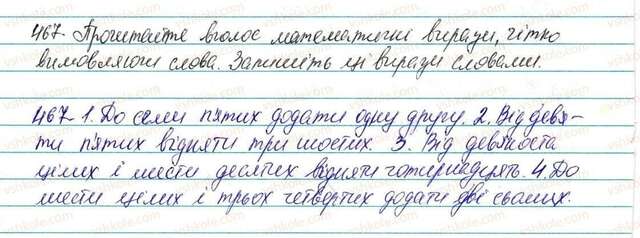 467. Прочитайте вголос математичні вирази, чітко
вимовляючи слова. Запишіть ці вирази словами.
467. 1. До семи п'ятих додати одну другу. 2. Від дев'я-
ти п'ятих відняти три шостих. 3. Від дев'яноста
цілих і шести десятих відняти чотирнадцять. 4. До
шести цілих і трьох четвертих додати дві сьомих.